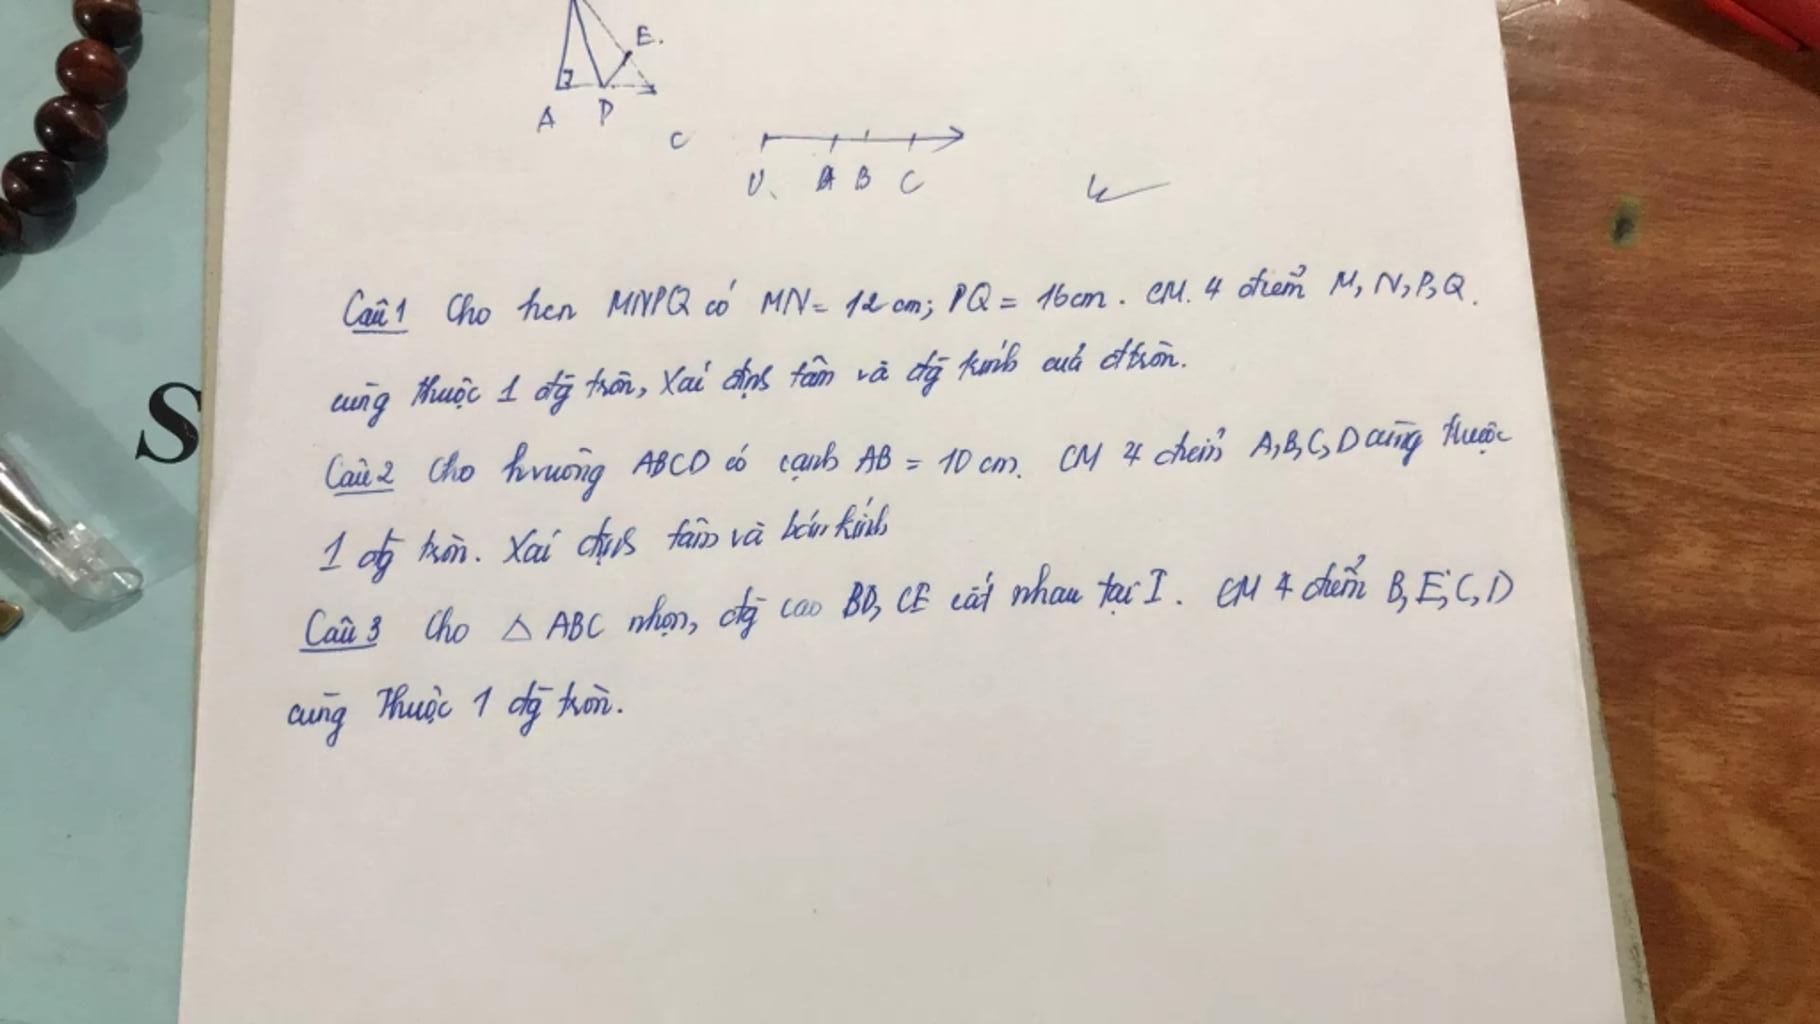 E.
A D
C
U. A B C
Câu 1 Cho hcn MNPQ có MN = 12 cm; PQ = 16 cm. CM. 4 điểm M, N, P, Q.
cùng thuộc 1 đg tròn, Xái định tâm và đg kính cuả đtròn.
Câu 2 Cho hvuông ABCD có cạnh AB = 10 cm. CM 4 điểm A, B, C, D cùng thuộc
1 đg tròn. Xái định tâm và bán kính
Câu 3 Cho △ ABC nhọn, đg cao BD, CE cắt nhau tại I. CM 4 điểm B, E, C, D
cùng thuộc 1 đg tròn.
S